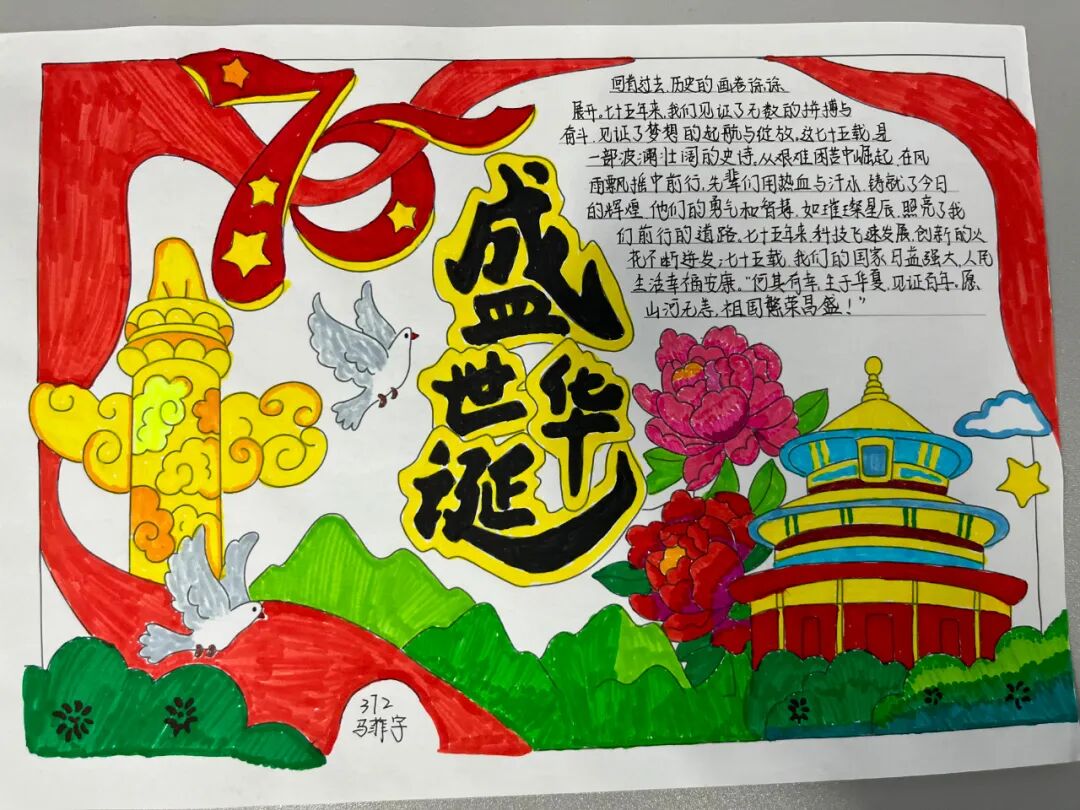 75
盛
世华
诞
回首过去,历史的画卷徐徐
展开。七十五年来,我们见证了无数的拼搏与
奋斗,见证了梦想的起航与绽放。这七十五载,是
一部波澜壮阔的史诗。从艰难困苦中崛起,在风
雨飘摇中前行。先辈们用热血与汗水,铸就了今日
的辉煌。他们的勇气和智慧,如璀璨星辰,照亮了我
们前行的道路。七十五年来,科技飞速发展,创新的火
花不断迸发;七十五载,我们的国家日益强大,人民
生活幸福安康。“何其有幸,生于华夏,见证百年。愿
山河无恙,祖国繁荣昌盛!”
372
马菲宇